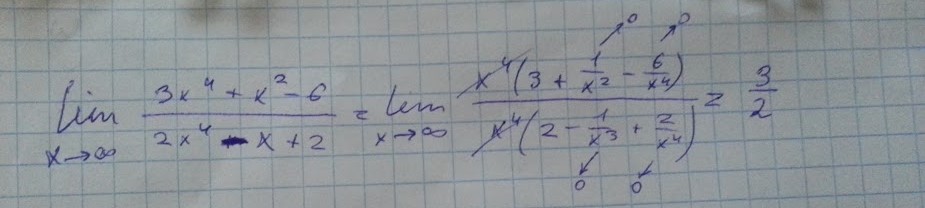 lim x→∞ (3x⁴ + x² - 6)/(2x⁴ - x + 2) = lim x→∞ (x⁴(3 + 1/x² - 6/x⁴))/(x⁴(2 - 1/x³ + 2/x⁴)) = 3/2
0 0
0 0